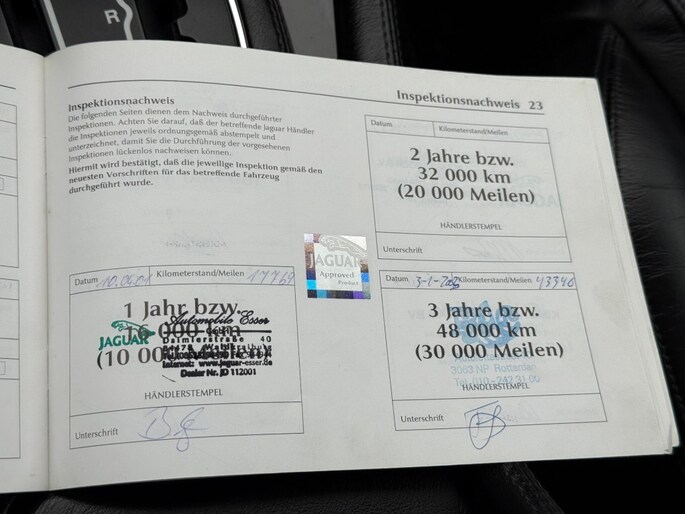 R
Inspektionsnachweis 23
Inspektionsnachweis
Die folgenden Seiten dienen dem Nachweis durchgeführter
Inspektionen. Achten Sie darauf, daß der betreffende Jaguar Händler
die Inspektionen jeweils ordnungsgemäß abstempelt und
unterzeichnet, damit Sie die Durchführung der vorgesehenen
Inspektionen lückenlos nachweisen können.
Hiermit wird bestätigt, daß die jeweilige Inspektion gemäß den
neuesten Vorschriften für das betreffende Fahrzeug
durchgeführt wurde.
Datum Kilometerstand/Meilen
2 Jahre bzw.
32 000 km
(20 000 Meilen)
HÄNDLERSTEMPEL
Unterschrift
JAGUAR
Approved
Product
Datum 10.04.01 Kilometerstand/Meilen 17769
1 Jahr bzw.
000 km
(10 000
Automobile Esser
JAGUAR
Daimlerstraße 40
Internet: www.jaguar-esser.de
Dealer Nr. JD 112001
HÄNDLERSTEMPEL
Unterschrift
Datum Kilometerstand/Meilen 43340
3 Jahre bzw.
48 000 km
(30 000 Meilen)
3063 NP Rotterdam
Tel. 010-242 31 00
HÄNDLERSTEMPEL
Unterschrift